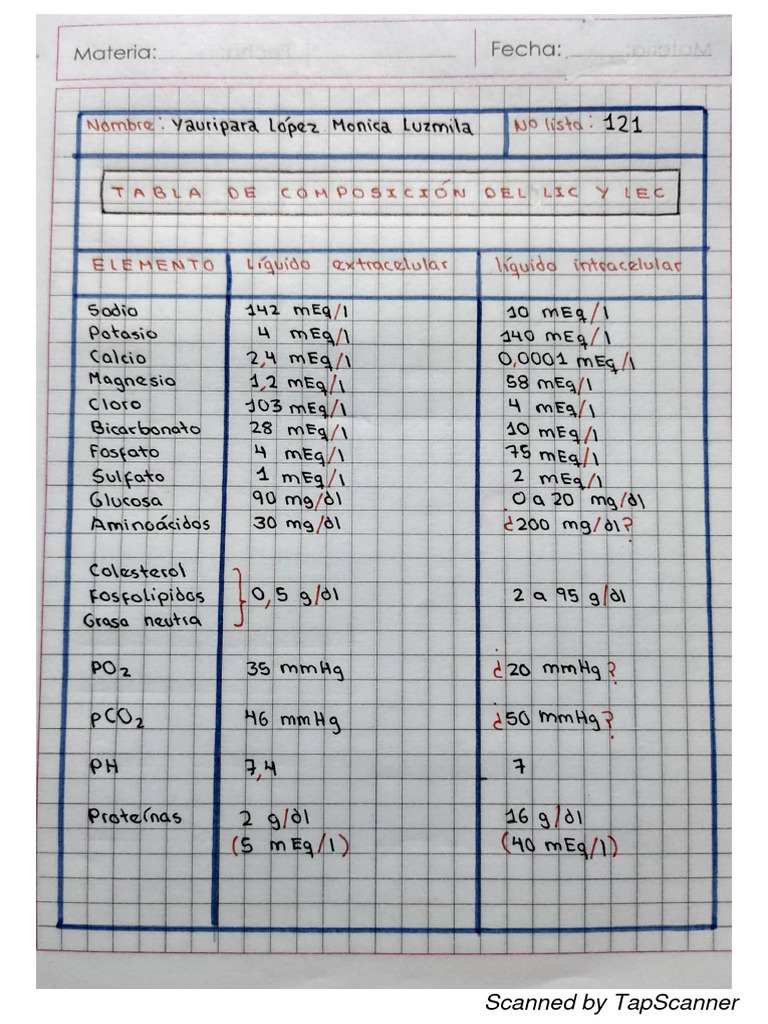 Materia: Fecha:
Nombre: Yauripara López Monica Luzmila No lista: 121
TABLA DE COMPOSICIÓN DEL LIC Y LEC
ELEMENTO Líquido extracelular líquido intracelular
Sodio 142 mEq/l 10 mEq/l
Potasio 4 mEq/l 140 mEq/l
Calcio 2,4 mEq/l 0,0001 mEq/l
Magnesio 1,2 mEq/l 58 mEq/l
Cloro 103 mEq/l 4 mEq/l
Bicarbonato 28 mEq/l 10 mEq/l
Fosfato 4 mEq/l 75 mEq/l
Sulfato 1 mEq/l 2 mEq/l
Glucosa 90 mg/dl 0 a 20 mg/dl
Aminoácidos 30 mg/dl ¿200 mg/dl?
Colesterol
Fosfolípidos 0,5 g/dl 2 a 95 g/dl
Grasa neutra
PO2 35 mmHg ¿20 mmHg?
pCO2 46 mmHg ¿50 mmHg?
PH 7,4 7
Proteínas 2 g/dl 16 g/dl
(5 mEq/l) (40 mEq/l)
Scanned by TapScanner